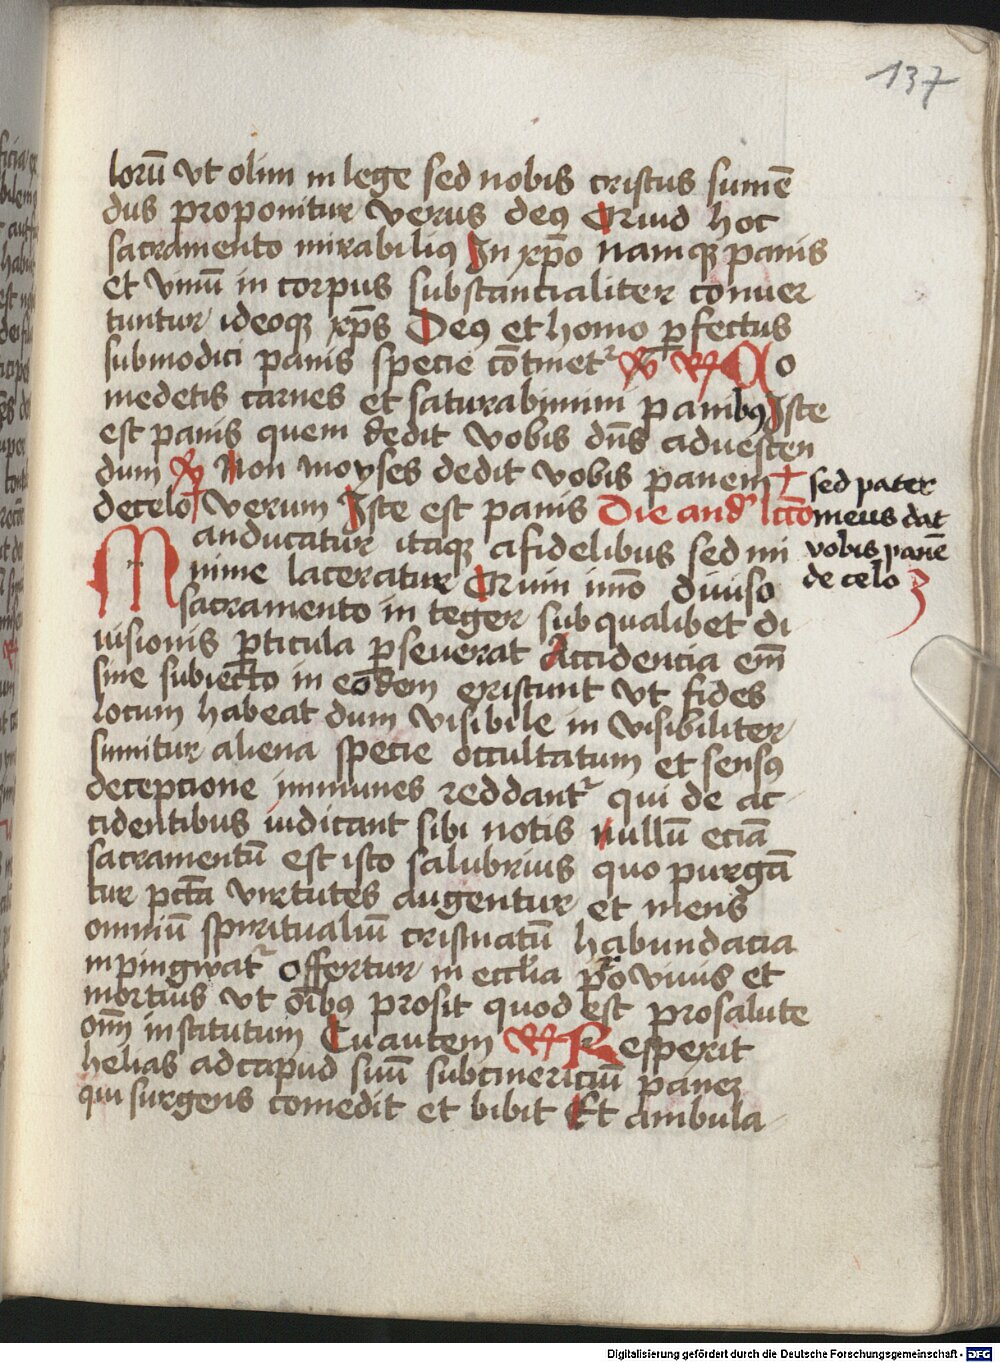 137
lorū vt olim in lege sed nobis cristus sumē
dus proponitur verus deꝰ Quid hoc
sacramento mirabiliꝰ In xp̄o namqꝫ panis
et vinū in corpus substancialiter conuer
tuntur ideoqꝫ xp̄s Deꝰ et homo ꝑfectus
submodici panis specie cōtinetᷣ
medetis carnes et saturabimini panibꝰ Iste
est panis quem dedit vobis dn̄s aduescen
dum Non moyses dedit vobis panem
decelo † verum Iste est panis Die
anducatur itaqꝫ afidelibus sed mi
nime laceratur Quin imo diuiso
sacramento in teger sub qualibet di
uisionis ꝑticula ꝑseuerat Accidencia em̄
sine subiecto in eodem existunt vt fides
locum habeat dum visibile in visibiliter
sumitur aliena specie occultatum et sensꝰ
decepcione immunes reddantᷣ qui de ac
cidentibus iudicant sibi notis nullū eciā
sacramentū est isto salubrius quo purgā
tur pctā virtutes augentur et mens
omniū spiritualiū crismatū habundācia
inpingwatᷣ offertur in ecclīa pro viuis et
mortuis vt oībꝰ prosit quod est prosalute
om̄ institutum Tu autem Respexit
helias adcapud suū subcinericiū panem
qui surgens comedit et bibit Et ambula
† sed pater
meus dat
vobis panē
de celo
Digitalisierung gefördert durch die Deutsche Forschungsgemeinschaft - DFG